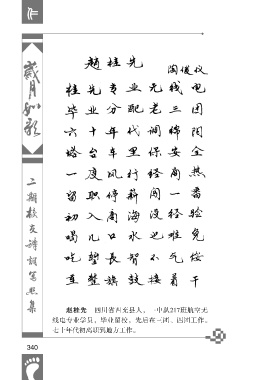 作
岁月如歌
二期校友诗词写照集
赵桂先
陶俊仪
桂先专业无线电
毕业分配老三团
六十年代调绵阳
塔台车里保安全
一度风行经商热
留职停薪闯一番
初入商海没经验
喝几口水也难免
吃堑长智不气馁
重整旗鼓接着干
赵桂先 四川省西充县人,一中队217班航空无
线电专业学员，毕业留校，先后在三团、四团工作。
七十年代初离职到地方工作。
340